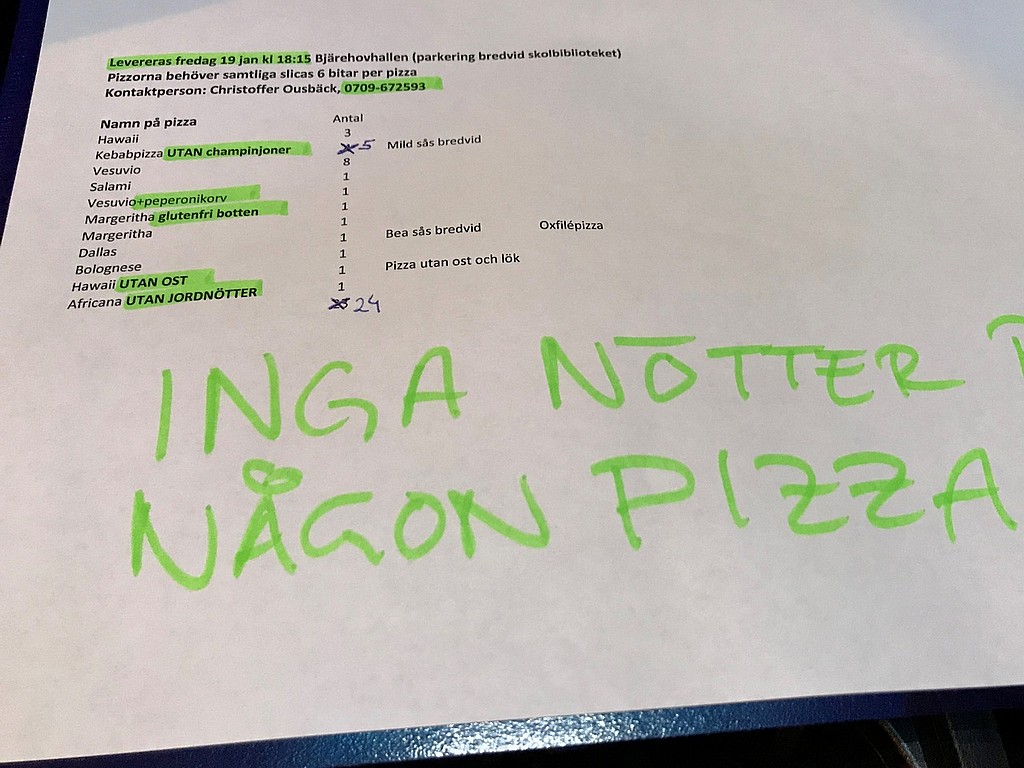 Levereras fredag 19 jan kl 18:15 Bjärehovhallen (parkering bredvid skolbiblioteket)
Pizzorna behöver samtliga slicas 6 bitar per pizza
Kontaktperson: Christoffer Ousbäck, 0709-672593
Namn på pizza Antal
Hawaii 3
Kebabpizza UTAN champinjoner 5 Mild sås bredvid
Vesuvio 8
Salami 1
Vesuvio+peperonikorv 1
Margeritha glutenfri botten 1
Margeritha 1
Dallas 1 Bea sås bredvid Oxfilépizza
Bolognese 1
Hawaii UTAN OST 1 Pizza utan ost och lök
Africana UTAN JORDNÖTTER 1
24
INGA NÖTTER
NÅGON PIZZA